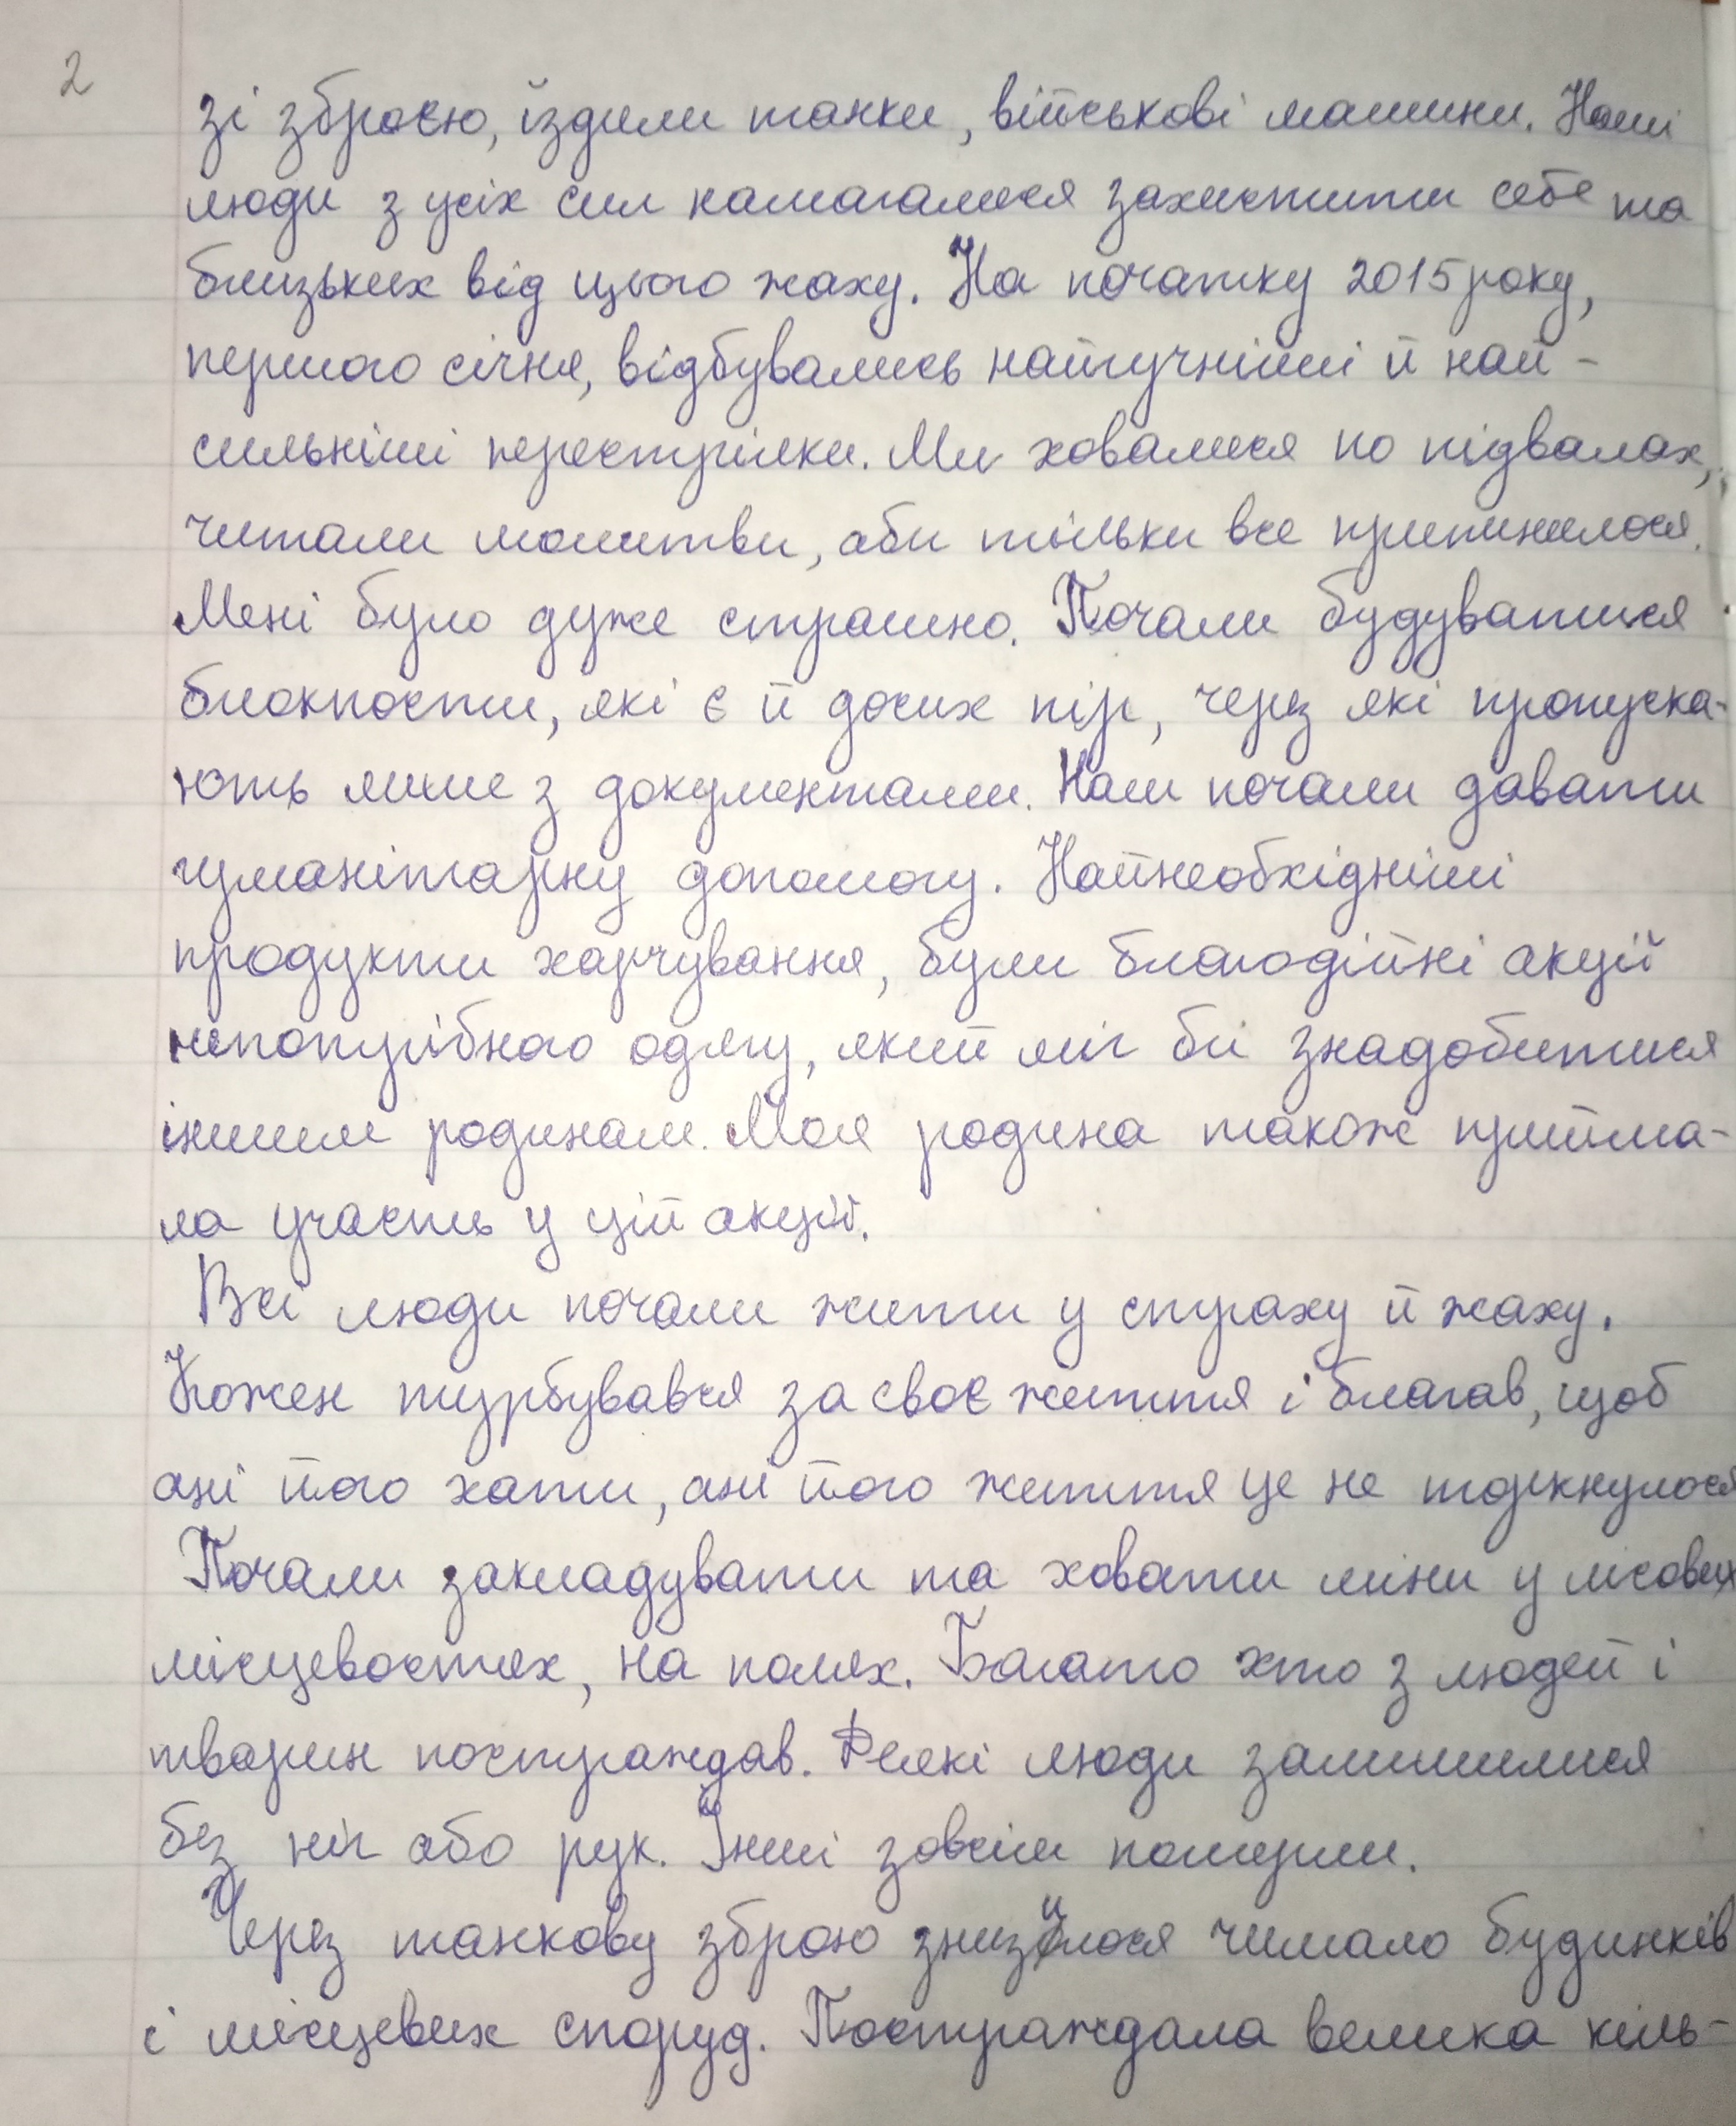 2
зі зброєю, їздили танки, військові машини. Наші
люди з усіх сил намагалися захистити себе та
близьких від цього жаху. На початку 2015 року,
першого січня, відбувались найгучніші й най-
сильніші перестрілки. Ми ховалися по підвалах,
читали молитви, аби тільки все припинилося.
Мені було дуже страшно. Почали будуватися
блокпости, які є й досих пір, через які пропуска-
ють лише з документами. Нам почали давати
гуманітарну допомогу. Найнеобхідніші
продукти харчування, були благодійні акції
непотрібного одягу, який міг би знадобитися
іншим родинам. Моя родина також прийма-
ла участь у цій акції.
Всі люди почали жити у страху й жаху.
Кожен турбувався за своє життя і благав, щоб
ані його хати, ані його життя це не торкнулося
Почали закладувати та ховати міни у лісових
місцевостях, на полях. Багато хто з людей і
тварин постраждав. Деякі люди залишилися
без ніг або рук. Інші зовсім померли.
Через танкову зброю знизилося чимало будинків
і місцевих споруд. Постраждала велика кіль-